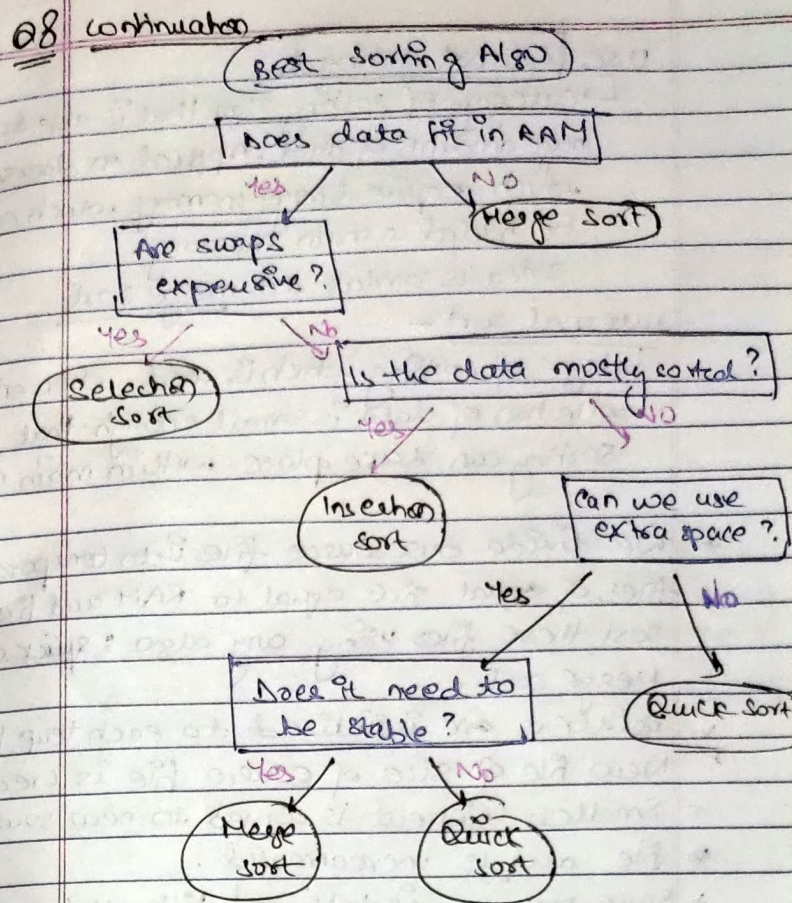 Q8 continuation
Best Sorting Algo
Does data fit in RAM
Yes
NO
Merge Sort
Are swaps
expensive?
Yes
No
Selection
Sort
Is the data mostly sorted?
Yes
NO
Insertion
sort
Can we use
extra space?
Yes
No
Does it need to
be stable?
Quick Sort
Yes
No
Merge
sort
Quick
sort